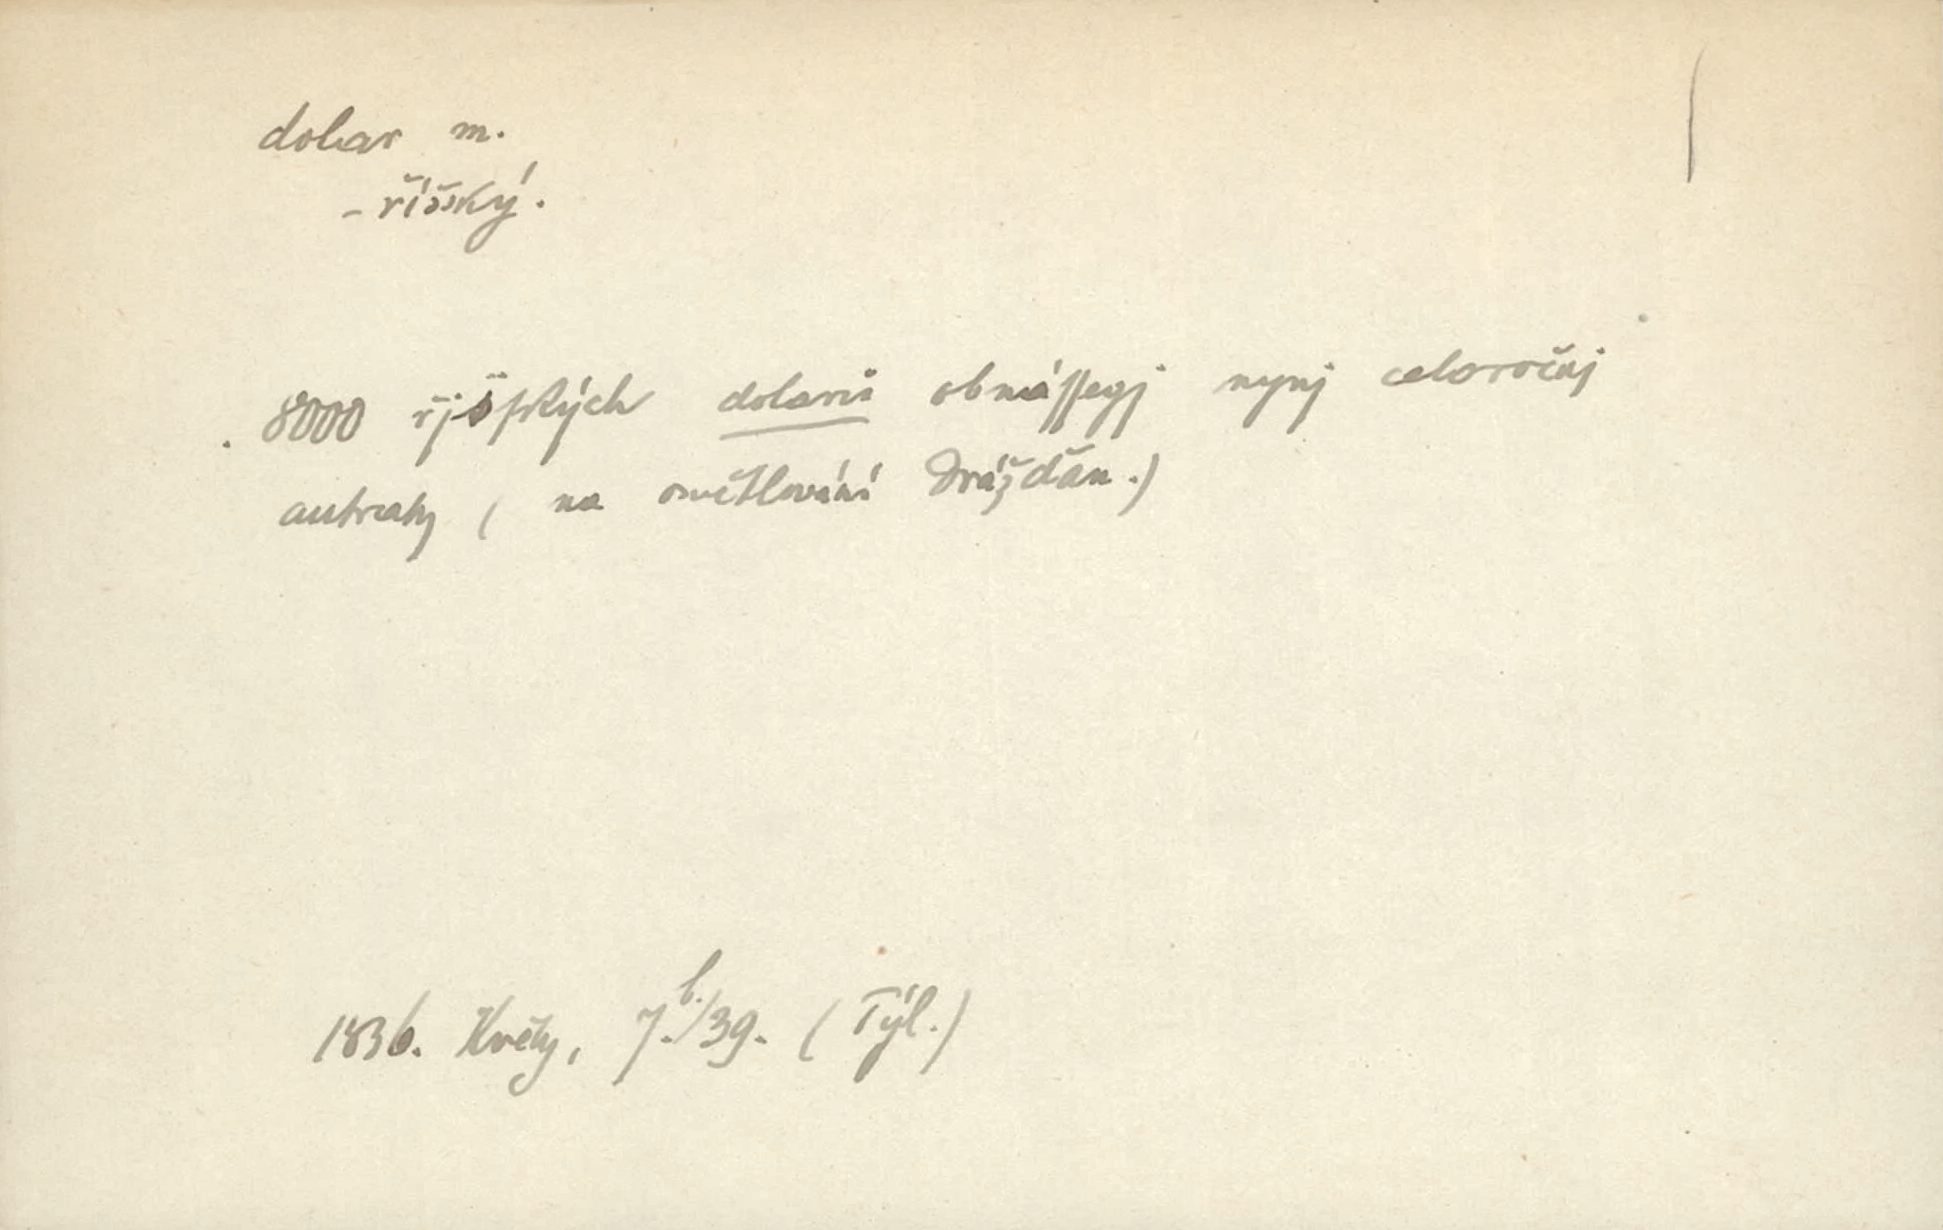 dolar m.
- říšský.
8000 řjšſkých dolarů obnáſſegj nynj celoročnj
autraty ( na osvětlování Drážďan.)
1836. Květy, 7.b./39. (Týl.)